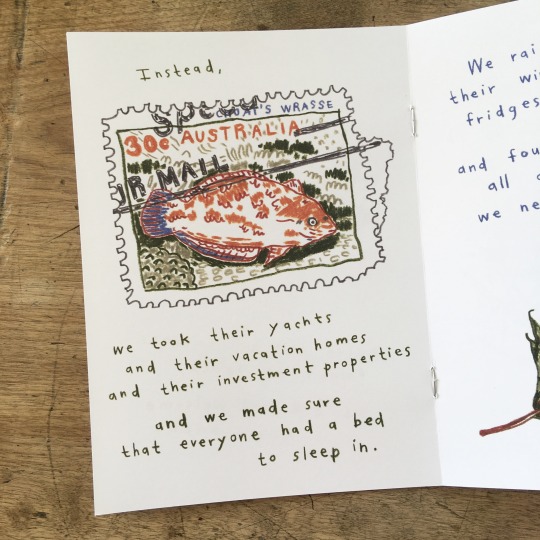 Instead,
CHOAT'S WRASSE
30c AUSTRALIA
MAIL
we took their yachts
and their vacation homes
and their investment properties
and we made sure
that everyone had a bed
to sleep in.
We
their
fridges
and
all
we